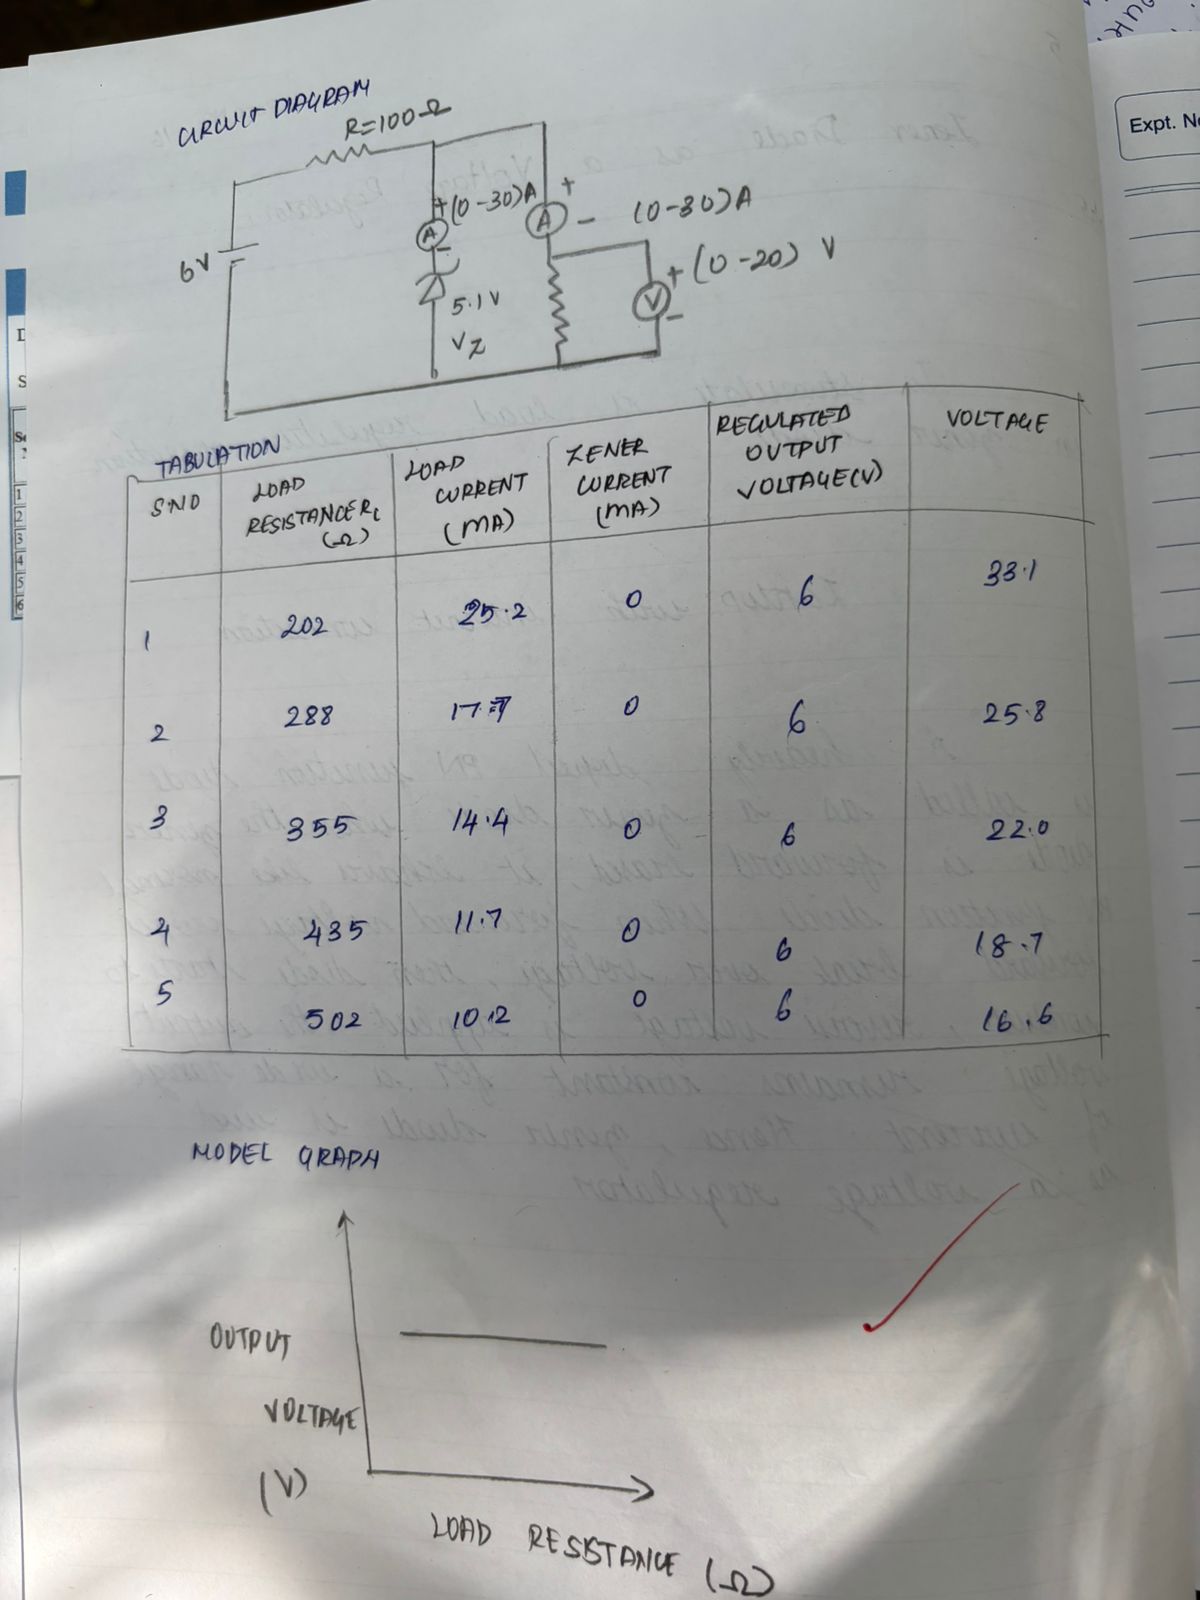 CIRCUIT DIAGRAM
R=100Ω
6V
+(0-30)A
A
-
5.1V
VZ
+
A
-
(0-30)A
+(0-20) V
V
-
Expt. N
TABULATION
S.NO
LOAD
RESISTANCE RL
(Ω)
LOAD
CURRENT
(MA)
ZENER
CURRENT
(MA)
REGULATED
OUTPUT
VOLTAGE(V)
VOLTAGE
1 202 25.2 0 6 33.1
2 288 17.7 0 6 25.8
3 355 14.4 0 6 22.0
4 435 11.7 0 6 18.7
5 502 10.2 0 6 16.6
MODEL GRAPH
OUTPUT
VOLTAGE
(V)
LOAD RESISTANCE (Ω)